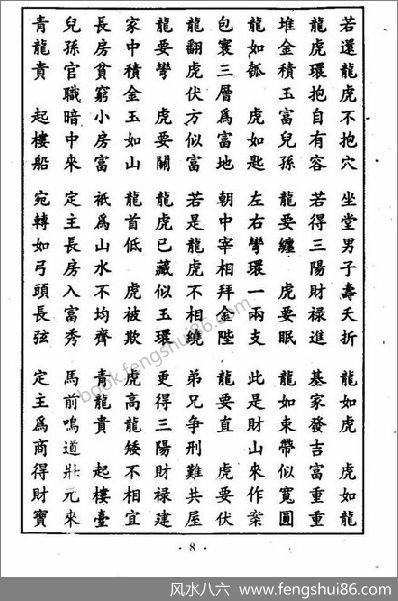 若還龍虎不抱穴　坐堂男子壽夭折　龍如虎　虎如龍
龍虎環抱自有容　若得三陽財祿進　基家發吉富重重
堆金積玉富兒孫　龍要纏　虎要眠　龍如束帶似寬圓
龍如瓠　虎如匙　左右彎環一兩支　此是財山來作案
包裹三層爲富地　朝中宰相拜金陛　龍要直　虎要伏
龍翻虎伏方似富　若是龍虎不相繞　弟兄爭刑難共屋
龍要彎　虎要關　龍虎已藏似玉環　更得三陽財祿建
家中積金玉如山　龍首低　虎被欺　虎高龍矮不相宜
長房貧窮小房富　祗爲山水不均齊　青龍貴　起樓臺
兒孫官職暗中來　定主長房入富秀　馬前鳴道壯元來
青龍貴　起樓船　宛轉如弓頭長弦　定主爲商得財寶
·8·
book.fengshui86.com
风水八六 - www.fengshui86.com